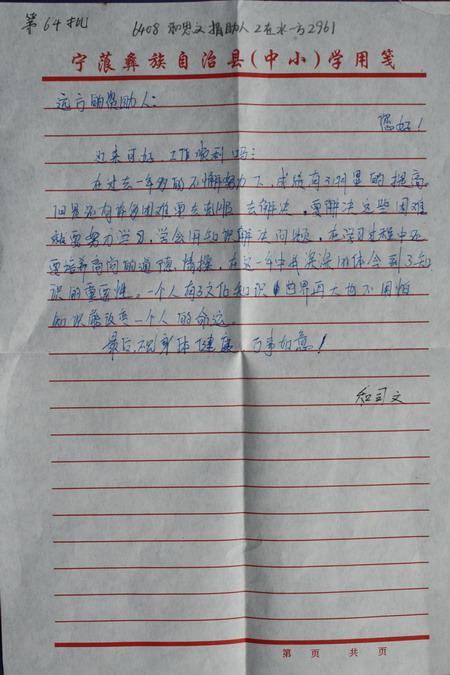 第64批
6408 和思文 捐助人 2在水一方2961
宁蒗彝族自治县(中小)学用笺
远方的资助人:
您好!
近来可好,工作顺利吗?
在过去一年我的不懈努力下,成绩有了明显的提高,
但是还有许多困难要去克服,去解决,要解决这些困难
就要努力学习,学会用知识解决问题,在学习过程中还
要培养高尚的道德情操,在这一年中我深深的体会到了知
识的重要性。一个人有了文化知识,世界再大也不用怕
知识能改变一个人的命运。
最后,祝身体健康,万事如意!
和司文
第 页 共 页